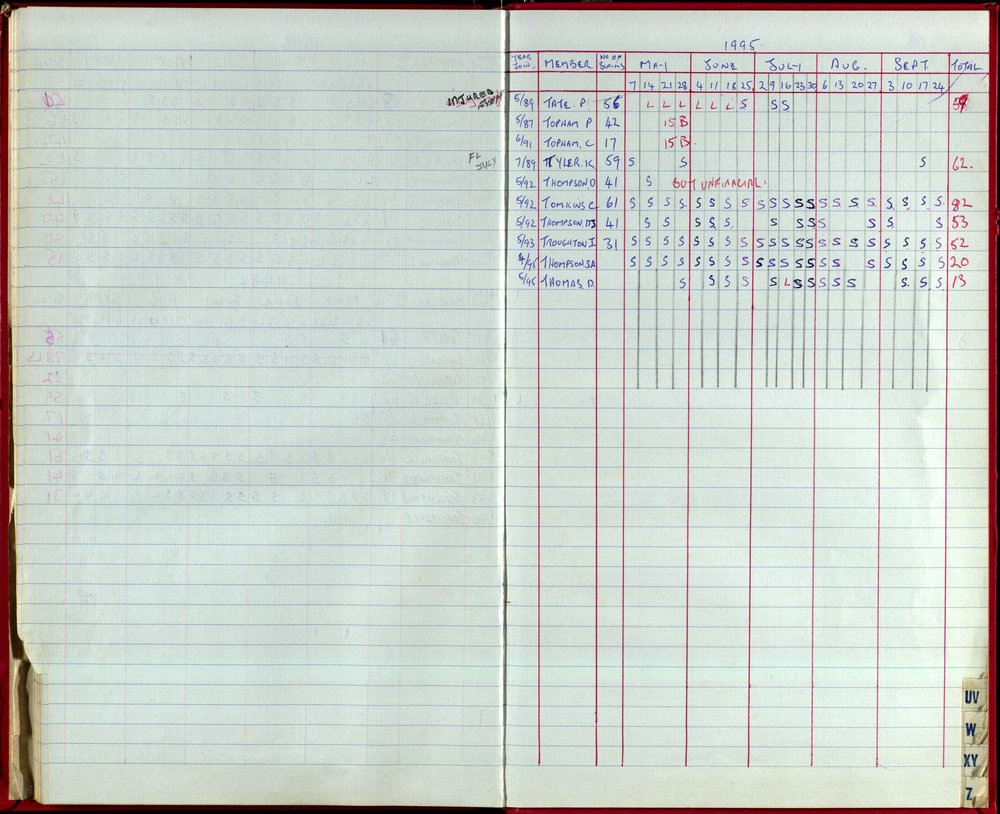 1995.
YEAR JOIN. MEMBER NO OF SWIMS MAY JUNE JULY AUG. SEPT TOTAL
7 14 21 28 4 11 18 25 2 9 16 23 30 6 13 20 27 3 10 17 24
INJURED 5/89 TATE. P. 56 L L L L L L S S S 59
5/87 TOPHAM P 42 15B
6/91 TOPHAM. C 17 15B
FL JULY 7/89 TYLER. K 59 S S S 62.
5/92 THOMPSON D 41 S OUT UNFINACIAL.
5/92 TOMKINS C 61 S S S S S S S S S S S S S S S S S S S S S 82
5/92 THOMPSON DJ 41 S S S S S S S S S S S S 53
5/93 TROUGHTON I 31 S S S S S S S S S S S S S S S S S S S S S 52
4/95 THOMPSON SA S S S S S S S S S S S S S S S S S S S S 20
5/95 THOMAS. D. S S S S S L S S S S S S S S 13
UV
W
XY
Z